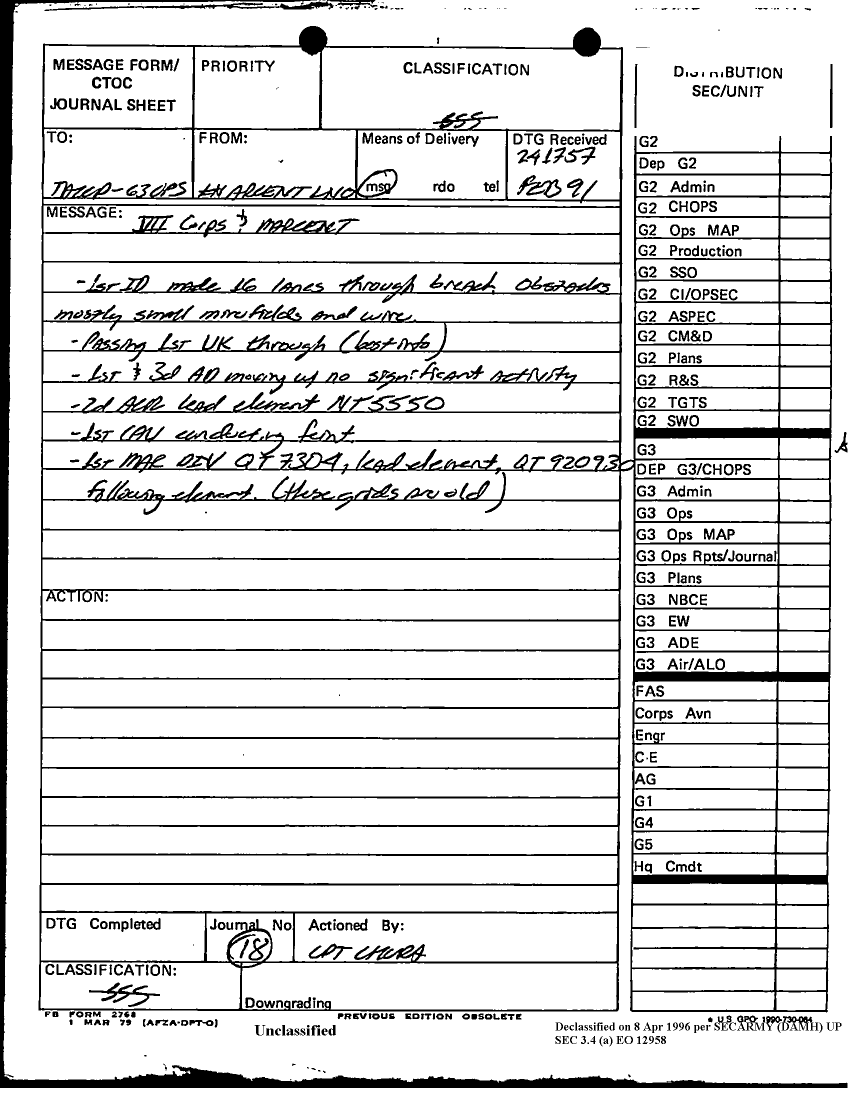 MESSAGE FORM/
CTOC
JOURNAL SHEET
PRIORITY
CLASSIFICATION
SSS
TO:
FROM:
Means of Delivery
DTG Received
241757
FEB 91
TACCP-G3 OPS
ARCENT LNO
msg rdo tel
MESSAGE:
VII Corps & MARCENT
-1st ID made 16 lanes through breach, obstacles
mostly small minefields and wire.
-Passing 1st UK through (best info)
-1st & 3d AD moving w/ no significant activity
-2d ACR lead element NT5550
-1st CAV conducting feint.
-1st MAR DIV QT 7304, lead element, QT 920930
following element. (these grids are old)
ACTION:
DTG Completed
Journal No
18
Actioned By:
CPT CHURA
CLASSIFICATION:
SSS
Downgrading
FB FORM 2768
1 MAR 79 (AFZA-DPT-O)
PREVIOUS EDITION OBSOLETE
Unclassified
DISTRIBUTION
SEC/UNIT
G2
Dep G2
G2 Admin
G2 CHOPS
G2 Ops MAP
G2 Production
G2 SSO
G2 CI/OPSEC
G2 ASPEC
G2 CM&D
G2 Plans
G2 R&S
G2 TGTS
G2 SWO
G3
DEP G3/CHOPS
G3 Admin
G3 Ops
G3 Ops MAP
G3 Ops Rpts/Journal
G3 Plans
G3 NBCE
G3 EW
G3 ADE
G3 Air/ALO
FAS
Corps Avn
Engr
C-E
AG
G1
G4
G5
Hq Cmdt
* U.S. GPO: 1990-730-064
Declassified on 8 Apr 1996 per SECARMY (DAMH) UP
SEC 3.4 (a) EO 12958